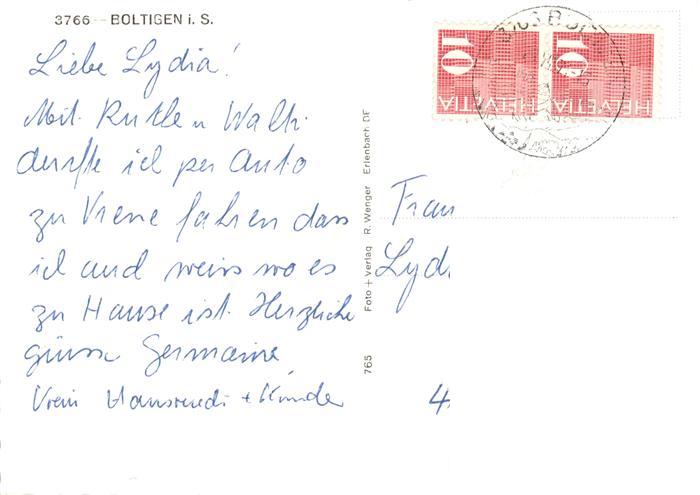 3766 BOLTIGEN i. S.
Liebe Lydia!
Mit Ruthle u Walti
durfte ich per Auto
zu Vrene fahren dass
ich auch weiss wo es
zu Hause ist. Herzliche
grüsse Germaine
Vreni Hansruedi + Kinder
765 Foto + Verlag R. Wenger Erlenbach DE
10 HELVETIA
10 HELVETIA
Frau
Lydi
4